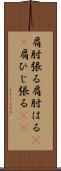 肩肘張る肩肘はる
肩ひじ張る